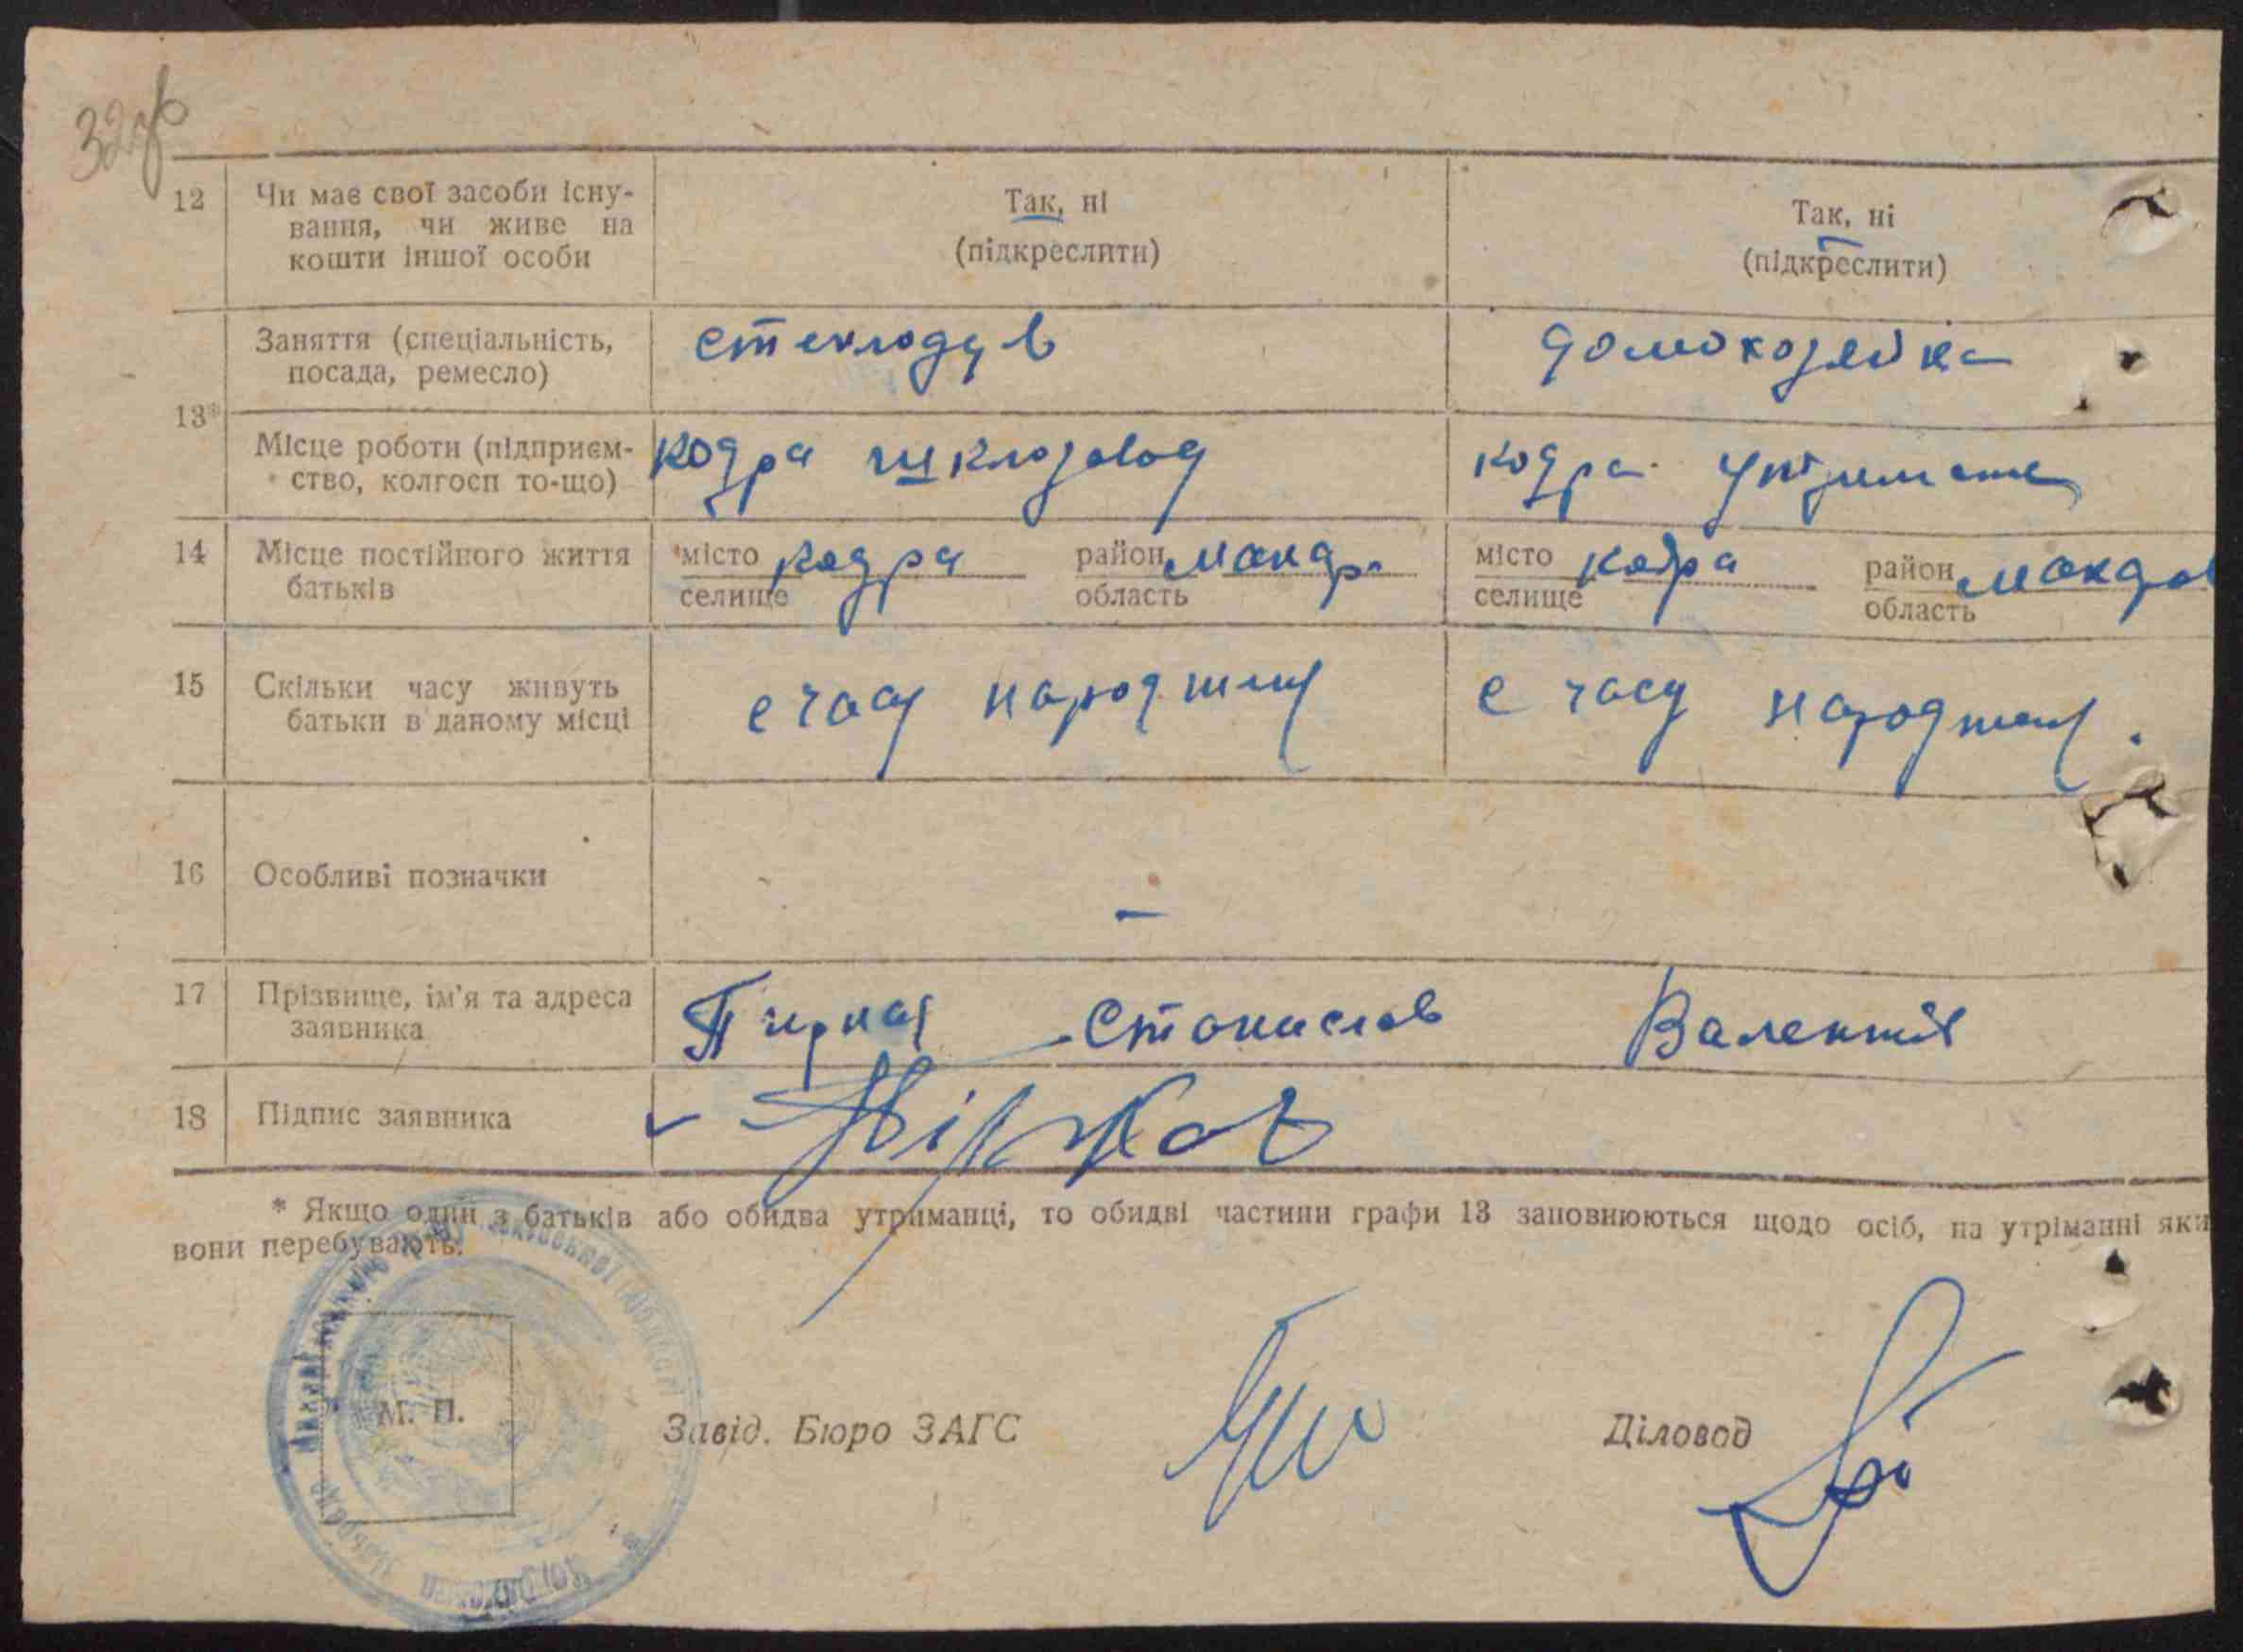 32зв
12 Чи має свої засоби існу- Так, ні Так, ні
вання, чи живе на (підкреслити) (підкреслити)
кошти іншої особи
Заняття (спеціальність, стеклодув домохозяйка
посада, ремесло)
13*
Місце роботи (підприєм- Кодра шклозавод Кодра
ство, колгосп то-що)
14 Місце постійного життя місто Кодра район Макар. місто Кодра район
батьків селище область селище область
15 Скільки часу живуть с часу с часу
батьки в даному місці
16 Особливі позначки –
17 Прізвище, ім'я та адреса Станислав
заявника
18 Підпис заявника
* Якщо один з батьків або обидва утриманці, то обидві частини графи 13 заповнюються щодо осіб, на утріманні яки
вони перебувають.
М. П.
Завід. Бюро ЗАГС Діловод